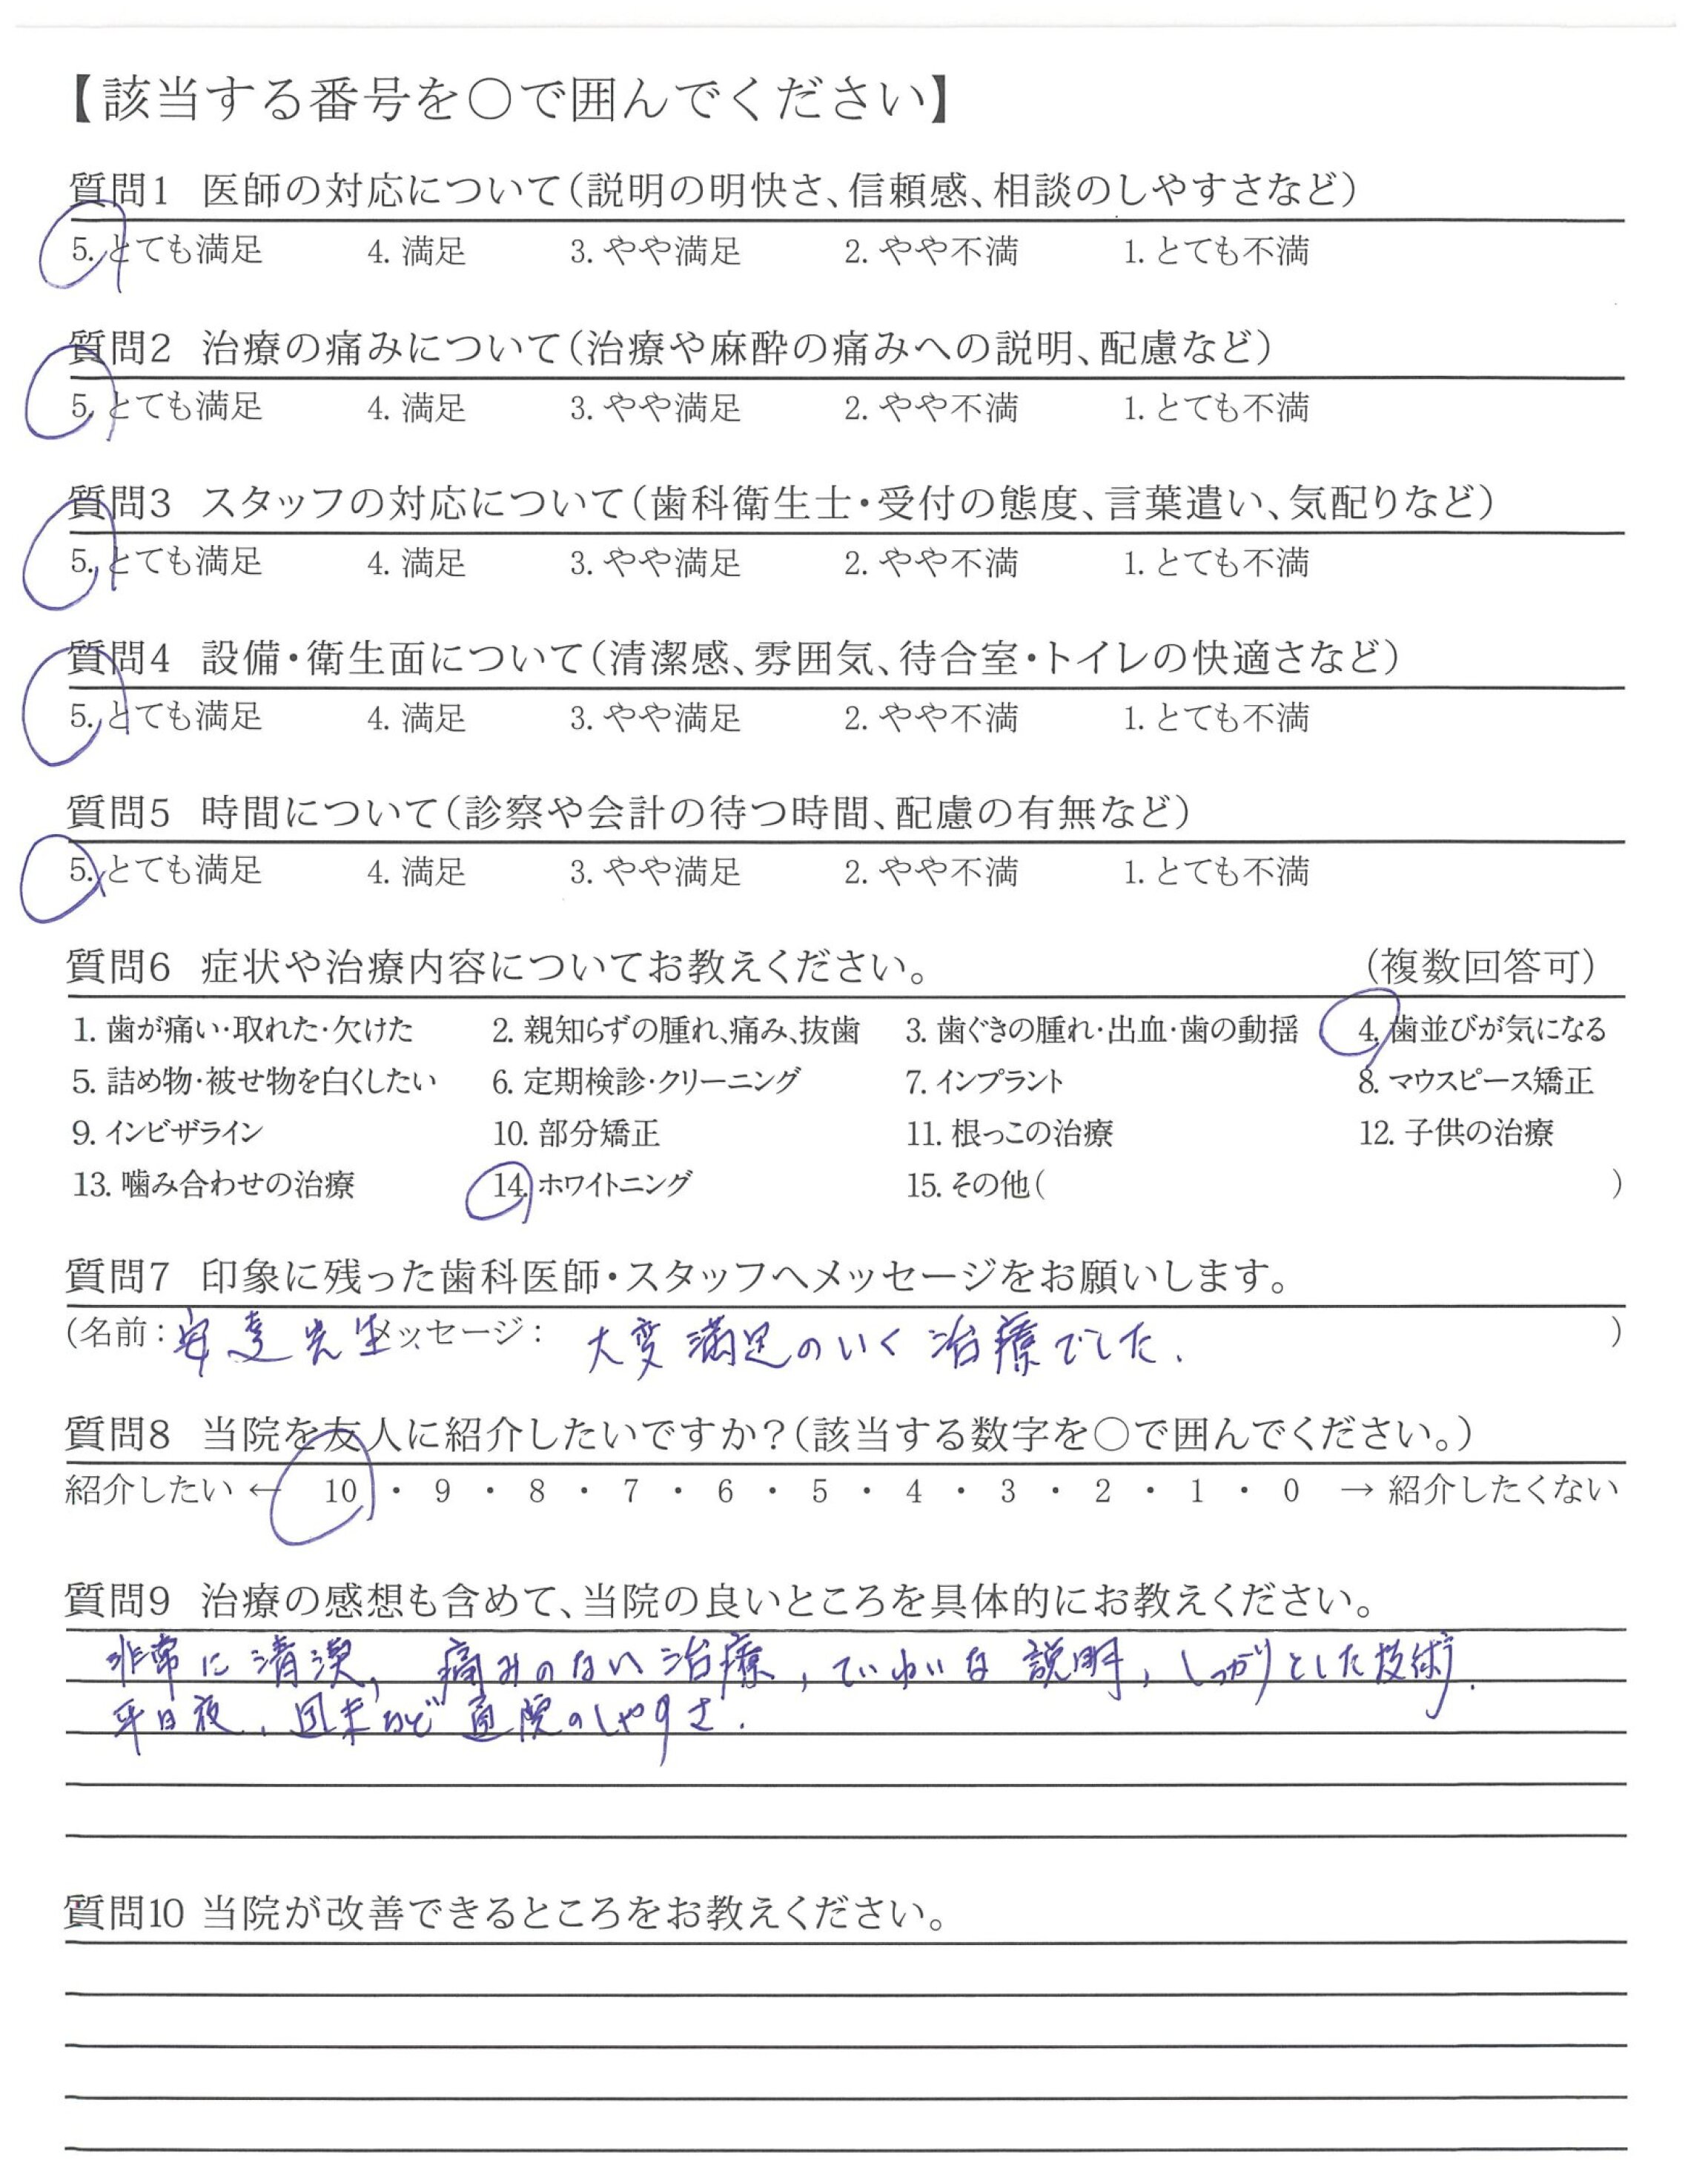 【該当する番号を○で囲んでください】
質問1 医師の対応について（説明の明快さ、信頼感、相談のしやすさなど）
5. とても満足 4. 満足 3. やや満足 2. やや不満 1. とても不満
質問2 治療の痛みについて（治療や麻酔の痛みへの説明、配慮など）
5. とても満足 4. 満足 3. やや満足 2. やや不満 1. とても不満
質問3 スタッフの対応について（歯科衛生士・受付の態度、言葉遣い、気配りなど）
5. とても満足 4. 満足 3. やや満足 2. やや不満 1. とても不満
質問4 設備・衛生面について（清潔感、雰囲気、待合室・トイレの快適さなど）
5. とても満足 4. 満足 3. やや満足 2. やや不満 1. とても不満
質問5 時間について（診察や会計の待つ時間、配慮の有無など）
5. とても満足 4. 満足 3. やや満足 2. やや不満 1. とても不満
質問6 症状や治療内容についてお教えください。 （複数回答可）
1. 歯が痛い・取れた・欠けた 2. 親知らずの腫れ、痛み、抜歯 3. 歯ぐきの腫れ・出血・歯の動揺 4. 歯並びが気になる
5. 詰め物・被せ物を白くしたい 6. 定期検診・クリーニング 7. インプラント 8. マウスピース矯正
9. インビザライン 10. 部分矯正 11. 根っこの治療 12. 子供の治療
13. 噛み合わせの治療 14. ホワイトニング 15. その他（ ）
質問7 印象に残った歯科医師・スタッフへメッセージをお願いします。
（名前：安達先生 メッセージ： 大変満足のいく治療でした. ）
質問8 当院を友人に紹介したいですか？（該当する数字を○で囲んでください。）
紹介したい ← 10 ・ 9 ・ 8 ・ 7 ・ 6 ・ 5 ・ 4 ・ 3 ・ 2 ・ 1 ・ 0 → 紹介したくない
質問9 治療の感想も含めて、当院の良いところを具体的にお教えください。
非常に清潔, 痛みのない治療, ていねいな説明, しっかりとした技術.
平日夜, 週末など通院のしやすさ.
質問10 当院が改善できるところをお教えください。